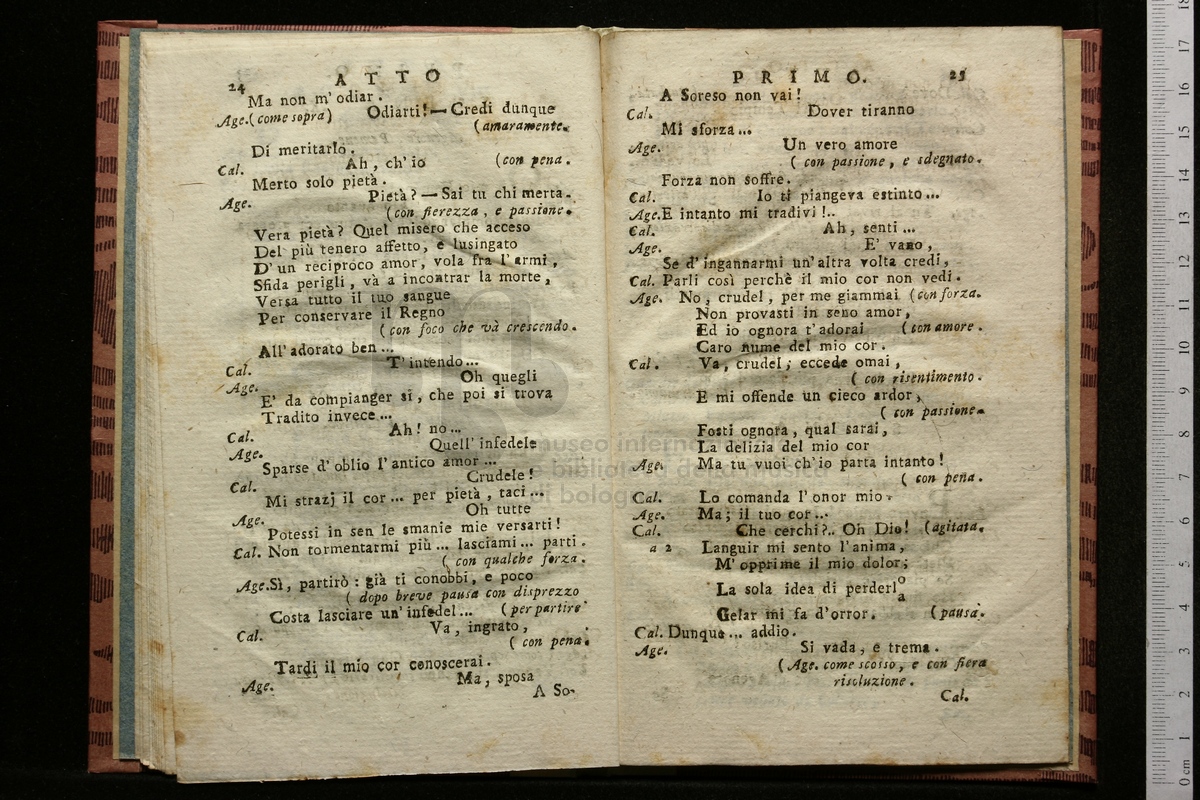 24
ATTO
Ma non m' odiar.
Age. (come sopra) Odiarti! — Credi dunque
(amaramente.
Di meritarlo.
Cal. Ah, ch' io (con pena.
Merto solo pietà.
Age. Pietà? — Sai tu chi merta
(con fierezza, e passione.
Vera pietà? Quel misero che acceso
Del più tenero affetto, e lusingato
D' un reciproco amor, vola fra l' armi,
Sfida perigli, và a incontrar la morte,
Versa tutto il tuo sangue
Per conservare il Regno
(con foco che và crescendo.
All' adorato ben ...
Cal. T' intendo ...
Age. Oh quegli
E' da compianger si, che poi si trova
Tradito invece ...
Cal. Ah! no ...
Age. Quell' infedele
Sparse d' oblio l' antico amor ...
Cal. Crudele!
Mi strazj il cor ... per pietà, taci ...
Age. Oh tutte
Potessi in sen le smanie mie versarti!
Cal. Non tormentarmi più ... lasciami ... parti.
(con qualche forza.
Age. Sì, partirò: già ti conobbi, e poco
(dopo breve pausa con disprezzo
Costa lasciare un' infedel ... (per partire
Cal. Va, ingrato,
(con pena.
Tardi il mio cor conoscerai.
Age. Ma, sposa
A So-
PRIMO.
25
A Soreso non vai!
Cal. Dover tiranno
Mi sforza ...
Age. Un vero amore
(con passione, e sdegnato.
Forza non soffre.
Cal. Io ti piangeva estinto ...
Age. E intanto mi tradivi!..
Cal. Ah, senti ...
Age. E' vano,
Se d' ingannarmi un' altra volta credi,
Cal. Parli così perchè il mio cor non vedi.
Age. No, crudel, per me giammai (con forza.
Non provasti in seno amor,
Ed io ognora t' adorai (con amore.
Caro nume del mio cor.
Cal. Va, crudel; eccede omai,
(con risentimento.
E mi offende un cieco ardor,
(con passione.
Fosti ognora, qual sarai,
La delizia del mio cor
Age. Ma tu vuoi ch' io parta intanto!
(con pena.
Cal. Lo comanda l' onor mio.
Age. Ma; il tuo cor ...
Cal. Che cerchi?.. Oh Dio! (agitata.
a 2 Languir mi sento l' anima,
M' opprime il mio dolor;
La sola idea di perderl o/a
Gelar mi fa d' orror. (pausa.
Cal. Dunque ... addio.
Age. Si vada, e trema.
(Age. come scosso, e con fiera
risoluzione.
Cal.